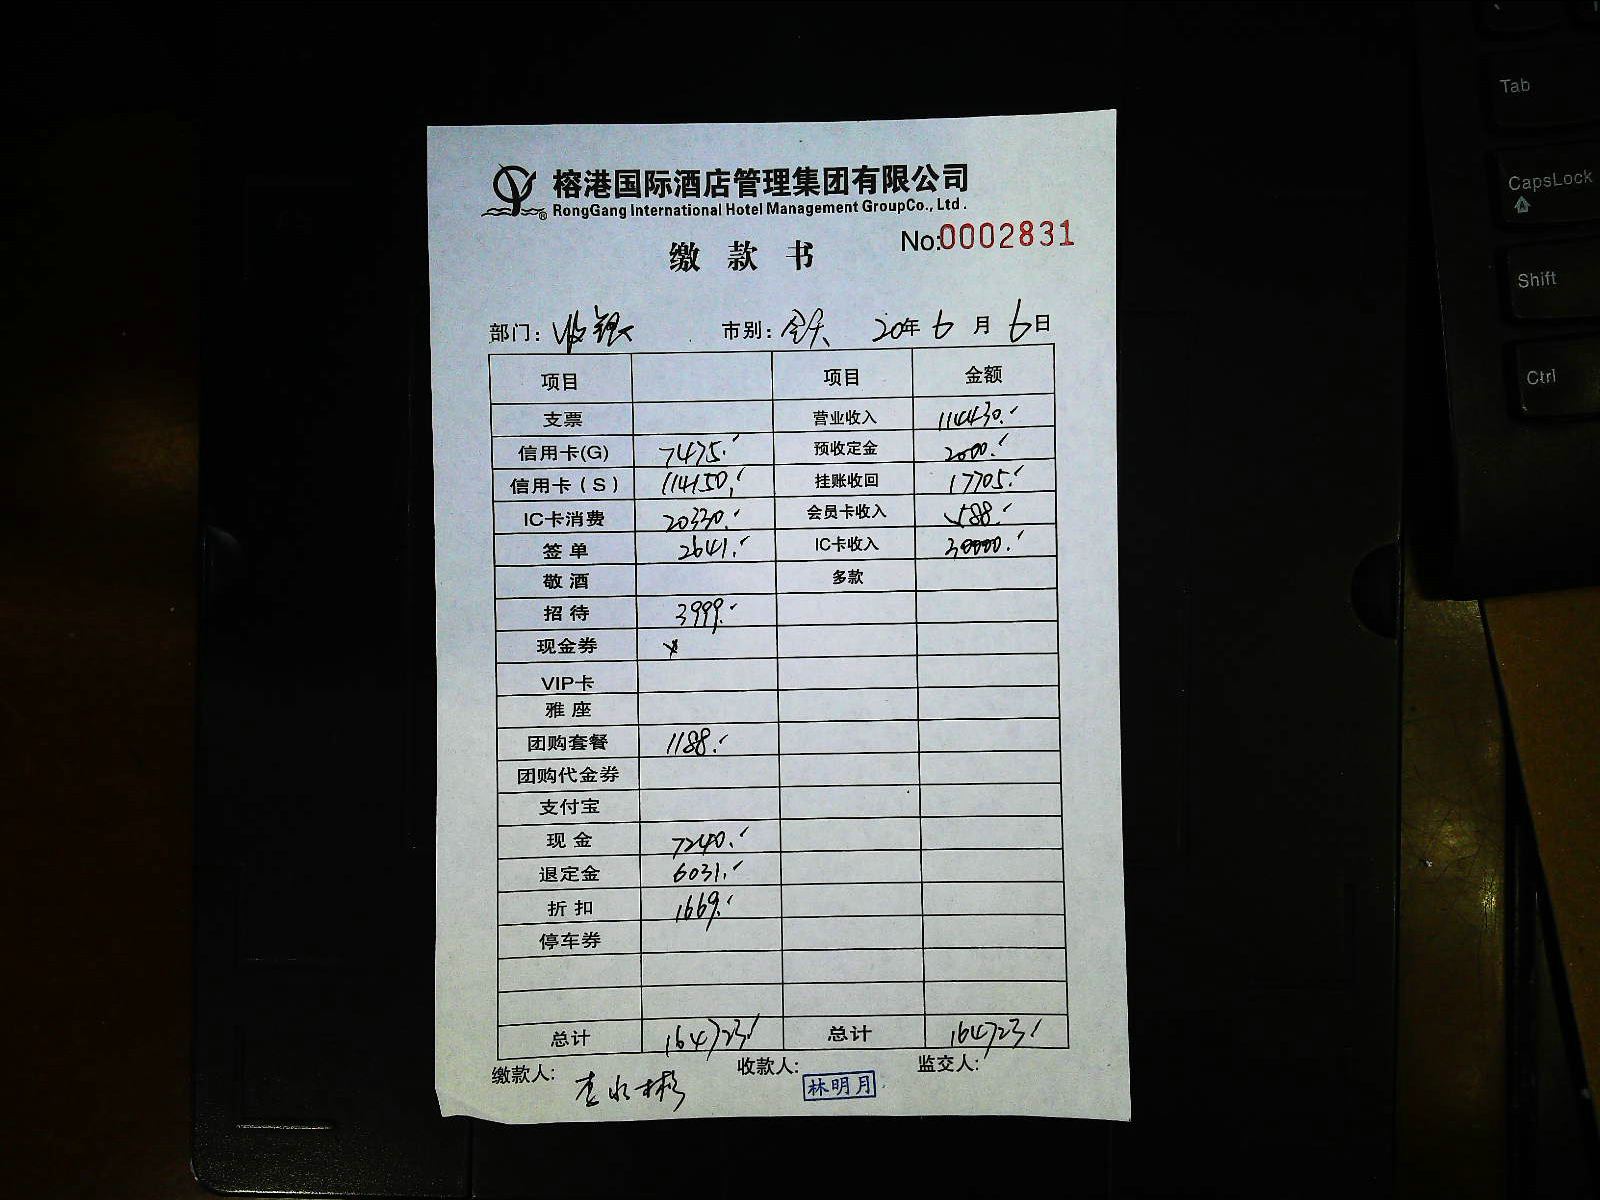 榕港国际酒店管理集团有限公司
RongGang International Hotel Management GroupCo., Ltd.
No:0002831
缴款书
部门: 收银 市别: 全天 20年 6 月 6日
项目 项目 金额
支票 营业收入 114430.
信用卡(G) 7475. 预收定金 2000.
信用卡(S) 114150. 挂账收回 17705.
IC卡消费 20330. 会员卡收入 588.
签单 2641. IC卡收入 30000.
敬酒 多款
招待 3999.
现金券
VIP卡
雅座
团购套餐 1188.
团购代金券
支付宝
现金 7240.
退定金 6031.
折扣 1669.
停车券
总计 164723 总计 164723
缴款人: 收款人: 林明月 监交人:
Tab
CapsLock
Shift
Ctrl